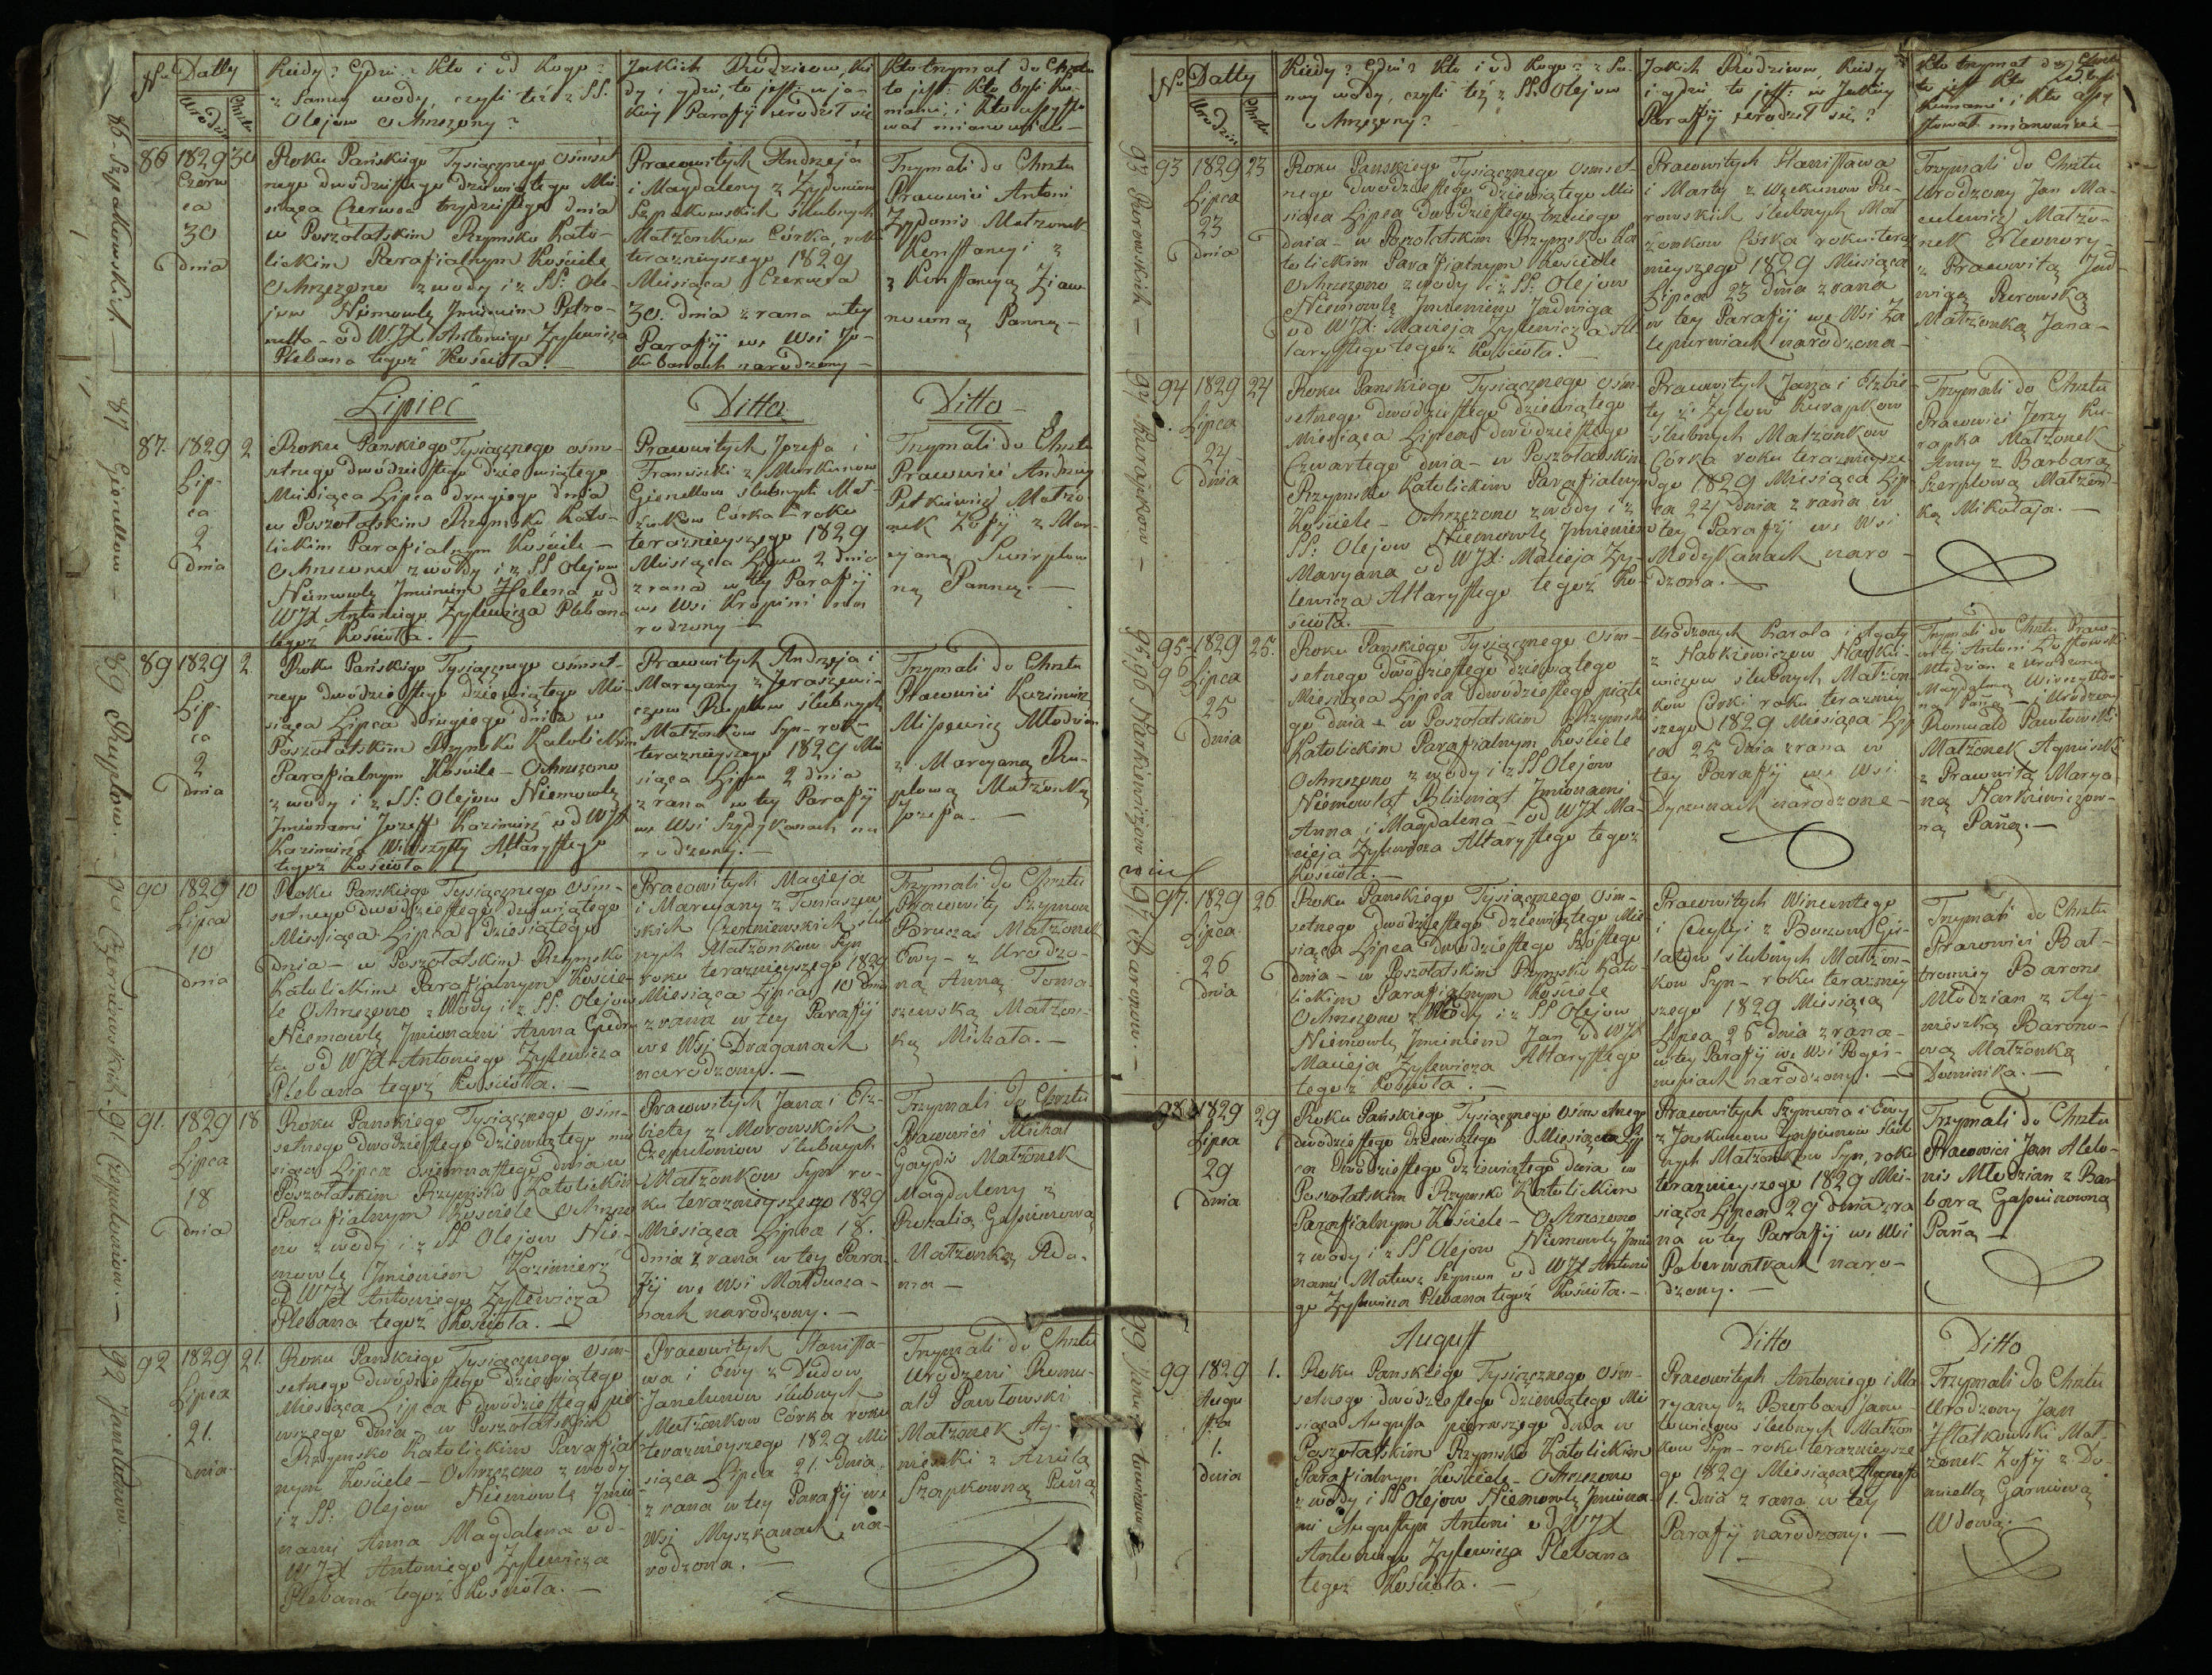 No Datty
Urodzin
Chrztu
Kiedy? Gdzie? Kto i od Kogo?
z Samey wody, czyli też z SS.
Olejow Ochrzczony?
Jakich Rodzicow, Kie
dy i gdzie, to jest: w ja-
kiey Parafij urodził się
Kto trzymał do Chrztu
to jest: Kto byli Ku-
mami, i Kto assysto
wał mianowicie—
86
1829
Czerw
ca
30
dnia
30
Roku Pańskiego Tysiącznego Ośmset
nego dwudziestego dziewiątego Mie
siąca Czerwca trzydziestego dnia
w Poszołatskim Rzymsko Kato-
lickim Parafialnym Kościele
Ochrzczono z wody i z SS: Ole-
jow Niemowlę Jmieniem Petro-
nella - od WJX Antoniego Zylewicza
Plebana tegoż Kościoła. —
Pracowitych Andrzeja
i Magdaleny z Zydoniow
Szpakowskich ślubnych
Małżonkow Córka, roku
teraznieyszego 1829
Miesiąca Czerwca
30. dnia z rana w tey
Parafij we Wsi Ja-
kubancach narodzony —
Trzymali do Chrztu
Pracowici Antoni
Zydonis Małżonek
Konstancyi z
z Konstancyą
Panną —
86 - Szpakowskich. —
Lipiec
Ditto
Ditto —
87.
1829
Lip-
ca
2
dnia
2
Roku Pańskiego Tysiącznego ośm-
setnego dwudziestego dziewiątego
Miesiąca Lipca drugiego dnia
w Poszołatskim Rzymsko Kato-
lickim Parafialnym Kościele —
Ochrzczono z wody i z SS Olejow
Niemowlę Jmieniem Helena od
WJX Antoniego Zylewicza Plebana
tegoż Kościoła. —
Pracowitych Jozefa i
Franciszki z Murkunow
Gienellow ślubnych Mał-
żonkow Córka - roku
teraznieyszego 1829
Miesiąca Lipca 2 dnia
z rana w tey Parafij
we Wsi Kropini na
rodzony —
Trzymali do Chrztu
Pracowici Andrzey
Petkiewicz Małżo
nek Zofij z Mar-
cyaną
ną Panną. —
87 - Gienellow —
89
1829
Lip-
ca
2
dnia
2
Roku Pańskiego Tysiącznego ośmset-
nego dwudziestego dziewiątego Mie-
siąca Lipca drugiego dnia w
Poszołatskim Rzymsko Katolickim
Parafialnym Kościele - Ochrzczono
z wody i z SS: Olejow Niemowlę
Jmionami Jozeff Kazimierz od WJX
Kazimierza Altarystego
tegoż Kościoła —
Pracowitych Andrzeja i
Maryany z Jeraszewi-
czow Ruplow ślubnych
Małżonkow Syn - roku
teraznieyszego 1829 Mie
siąca Lipca 2 dnia
z rana w tey Parafij
we Wsi Szydykanach na
rodzony. —
Trzymali do Chrztu
Pracowici Kazimierz
Misiewicz Młodzian
z Maryaną Ru-
plową Małżonką
Jozefa. —
89 Ruplow. —
90
1829
Lipca
10
dnia
10
Roku Pańskiego Tysiącznego ośm-
setnego dwudziestego dziewiątego
Miesiąca Lipca dziesiątego
dnia - w Poszołatskim Rzymsko
Katolickim Parafialnym Koście-
le Ochrzczono z Wody i z SS: Olejow
Niemowlę Jmionami Anna
ta od WJX Antoniego Zylewicza
Plebana tegoż Kościoła. —
Pracowitych Macieja
i Maryany z Tomaszew
skich Czerniewskich ślub
nych Małżonkow Syn
roku teraznieyszego 1829
Miesiąca Lipca 10 dnia
z rana w tey Parafij
we Wsi Draganach
narodzony. —
Trzymali do Chrztu
Pracowity Szymon
Bruczas Małżonek
Ewy - z Urodzo-
ną Anną Toma-
szewską Małżon-
ką Michała. —
90 Czerniewskich
91.
1829
Lipca
18
dnia
18
Roku Pańskiego Tysiącznego ośm-
setnego dwudziestego Dziewiątego mie
siąca Lipca osiemnastego dnia w
Poszołatskim Rzymsko Katolickim
Parafialnym Kościele Ochrzczo
no z wody i z SS Olejow Nie-
mowlę Jmieniem Kazimierz
od WJX Antoniego Zylewicza
Plebana tegoż Kościoła. —
Pracowitych Jana i Elż-
biety z Morowskich
Czepuloniow ślubnych
Małżonkow Syn ro-
ku teraznieyszego 1829
Miesiąca Lipca 18.
dnia z rana w tey Para-
fij we Wsi Małducza-
nach narodzony. —
Trzymali do Chrztu
Pracowici Michał
Gaydis Małżonek
Magdaleny z
Rozalią Gasiunową
Małżonką Ada-
ma —
91 Czepuloniow. —
92
1829
Lipca
21.
dnia
21.
Roku Pańskiego Tysiącznego Ośm-
setnego dwudziestego dziewiątego
Miesiąca Lipca dwudziestego pier
wszego dnia - w Poszołatskim
Rzymsko Katolickim Parafial
nym Kościele - Ochrzczono z wody
i z SS: Olejow Niemowlę Jmio
nami Anna Magdalena od
WJX Antoniego Zylewicza
Plebana tegoż Kościoła. —
Pracowitych Stanisła-
wa i Ewy z Dudow
Janelunow ślubnych
Małżonkow Córka roku
teraznieyszego 1829 Mie
siąca Lipca 21. dnia
z rana w tey Parafij we
Wsi Myszkanach na-
rodzona. —
Trzymali do Chrztu
Urodzeni Romu-
ald Pawłowski
Małżonek Ag-
nieszki z Anielą
Szapkowną Pańą
No Datty
Urodzin
Chrztu
Kiedy? Gdzie? Kto i od Kogo? z Sa-
mey wody, czyli też z SS: Olejow
Ochrzczony?
Jakich Rodzicow, Kiedy
i gdzie to jest: w Jakiey
Parafij urodził się?
Kto trzymał do Chrztu
to jest Kto byli
Kumami i Kto assy
stował mianowicie
93
1829
Lipca
23
dnia
23
Roku Pańskiego Tysiącznego Ośmset-
nego Dwudziestego Dziewiątego Mie
siąca Lipca Dwudziestego trzeciego
dnia - w Poszołatskim Rzymsko Ka
tolickim Parafialnym Kościele
Ochrzczono z wody i z SS: Olejow
Niemowlę Jmieniem Jadwiga
od WJX: Macieja Zylewicza Al
tarystego tegoż Kościoła. —
Pracowitych Stanisława
i Marty z Węckunow Pie-
rowskich ślubnych Mał
żonkow Córka roku teraz
nieyszego 1829 Miesiąca
Lipca 23 dnia z rana
w tey Parafij we Wsi Za
lepurwiach narodzona —
Trzymali do Chrztu
Urodzony Jan Ma-
culewicz Małżo-
nek Eleonory -
z Pracowitą Jad-
wigą Pierowską
Małżonką Jana —
94
1829
Lipca
24
dnia
24
Roku Pańskiego Tysiącznego ośm-
setnego dwudziestego dziewiątego
Miesiąca Lipca dwudziestego
Czwartego dnia - w Poszołatskim
Rzymsko Katolickim Parafialnym
Kościele - Ochrzczono z wody i z
SS: Olejow Niemowlę Jmieniem
Maryana od WJX: Macieja Zy-
lewicza Altarystego tegoż Ko-
ścioła. —
Pracowitych Jana i Elżbie
ty z Zylow Kurapkow
ślubnych Małżonkow
Córka roku teraznieysze
go 1829 Miesiąca Lip
ca 24 dnia z rana w
tey Parafij we Wsi
Medykanach naro-
dzona. —
Trzymali do Chrztu
Pracowici Jerzy Ku-
rapka Małżonek
Anny z Barbarą
Szerplową Małżon-
ką Mikołaja. —
94 Kurapkow —
95
96
1829
Lipca
25
dnia
25.
Roku Pańskiego Tysiącznego Ośm-
setnego dwudziestego dziewiątego
Miesiąca Lipca dwudziestego piąte
go dnia - w Poszołatskim Rzymsko
Katolickim Parafialnym Kościele
Ochrzczono z wody i z SS Olejow
Niemowląt Bliźniąt Jmionami
Anna i Magdalena - od WJX Ma-
cieja Zylewicza Altarystego tegoż
Kościoła. —
Urodzonych Karola i Agaty
z Narkiewiczow Narkie-
wiczow ślubnych Małżon-
kow Córki roku terazniey
szego 1829 Miesiąca Lip
ca 25 dnia z rana w
tey Parafij we Wsi
Dyczunach narodzone —
Trzymali do Chrztu Praco-
wity Antoni
Młodzian z Urodzoną
Magdaleną
ną Pańą - i Urodzony
Romuald Pawłowski
Małżonek Agnieszki
z Pracowitą Marya-
ną Narkiewiczow-
ną Pańą. —
95. 96 Narkiewiczow
97.
1829
Lipca
26
dnia
26
Roku Pańskiego Tysiącznego Ośm-
setnego dwudziestego dziewiątego Mie
siąca Lipca dwudziestego Szóstego
dnia - w Poszołatskim Rzymsko Kato-
lickim Parafialnym Kościele
Ochrzczono z Wody i z SS Olejow
Niemowlę Jmieniem Jan od WJX
Macieja Zylewicza Altarystego
tegoż Kościoła. —
Pracowitych Wincentego
i Cecylij z
ślubnych Małżon-
kow Syn - roku teraźniey
szego 1829 Miesiąca
Lipca 26 dnia z rana -
w tey Parafij we Wsi
narodzony. —
Trzymali do Chrztu
Pracowici Bał-
tromiey Barons
Młodzian z Ag-
nieszką Barono-
wą Małżonką
Dominika. —
97 Baronow —
98
1829
Lipca
29
dnia
29
Roku Pańskiego Tysiącznego Ośmsetnego
dwudziestego dziewiątego Miesiąca Lip
ca Dwudziestego dziewiątego dnia w
Poszołatskim Rzymsko Katolickim
Parafialnym Kościele - Ochrzczono
z wody i z SS Olejow Niemowlę Jmio
nami Mateusz Szymon od WJX Antonie
go Zylewicza Plebana tegoż Kościoła. —
Pracowitych Szymona i Ewy
z Jaskunow ślub
nych Małżonkow Syn, roku
teraznieyszego 1829 Mie-
siąca Lipca 29 dnia z ra
na w tey Parafij we Wsi
Poberwałkach naro-
dzony. —
Trzymali do Chrztu
Pracowici Jan Alelo-
nis Młodzian z Bar
barą Gasiunowną
Pańą —
August
Ditto
Ditto
99
1829
Augu
sta
1.
dnia
1.
Roku Pańskiego Tysiącznego Ośm-
setnego dwudziestego dziewiątego Mie
siąca Augusta pierwszego dnia w
Poszołatskim Rzymsko Katolickim
Parafialnym Kościele - Ochrzczono
z wody i SS Olejow Niemowlę Jmiona-
mi Augustyn Antoni od WJX
Antoniego Zylewicza Plebana
tegoż Kościoła. —
Pracowitych Antoniego i Ma
ryany z Bierbow Janu-
lewiczow ślubnych Małżon
kow Syn - roku teraznieysze
go 1829 Miesiąca Augusta
1. dnia z rana w tey
Parafij narodzony. —
Trzymali do Chrztu
Urodzony Jan
Hlatkowski Mał-
żonek Zofij z Do-
micellą Garniową
Wdową. —